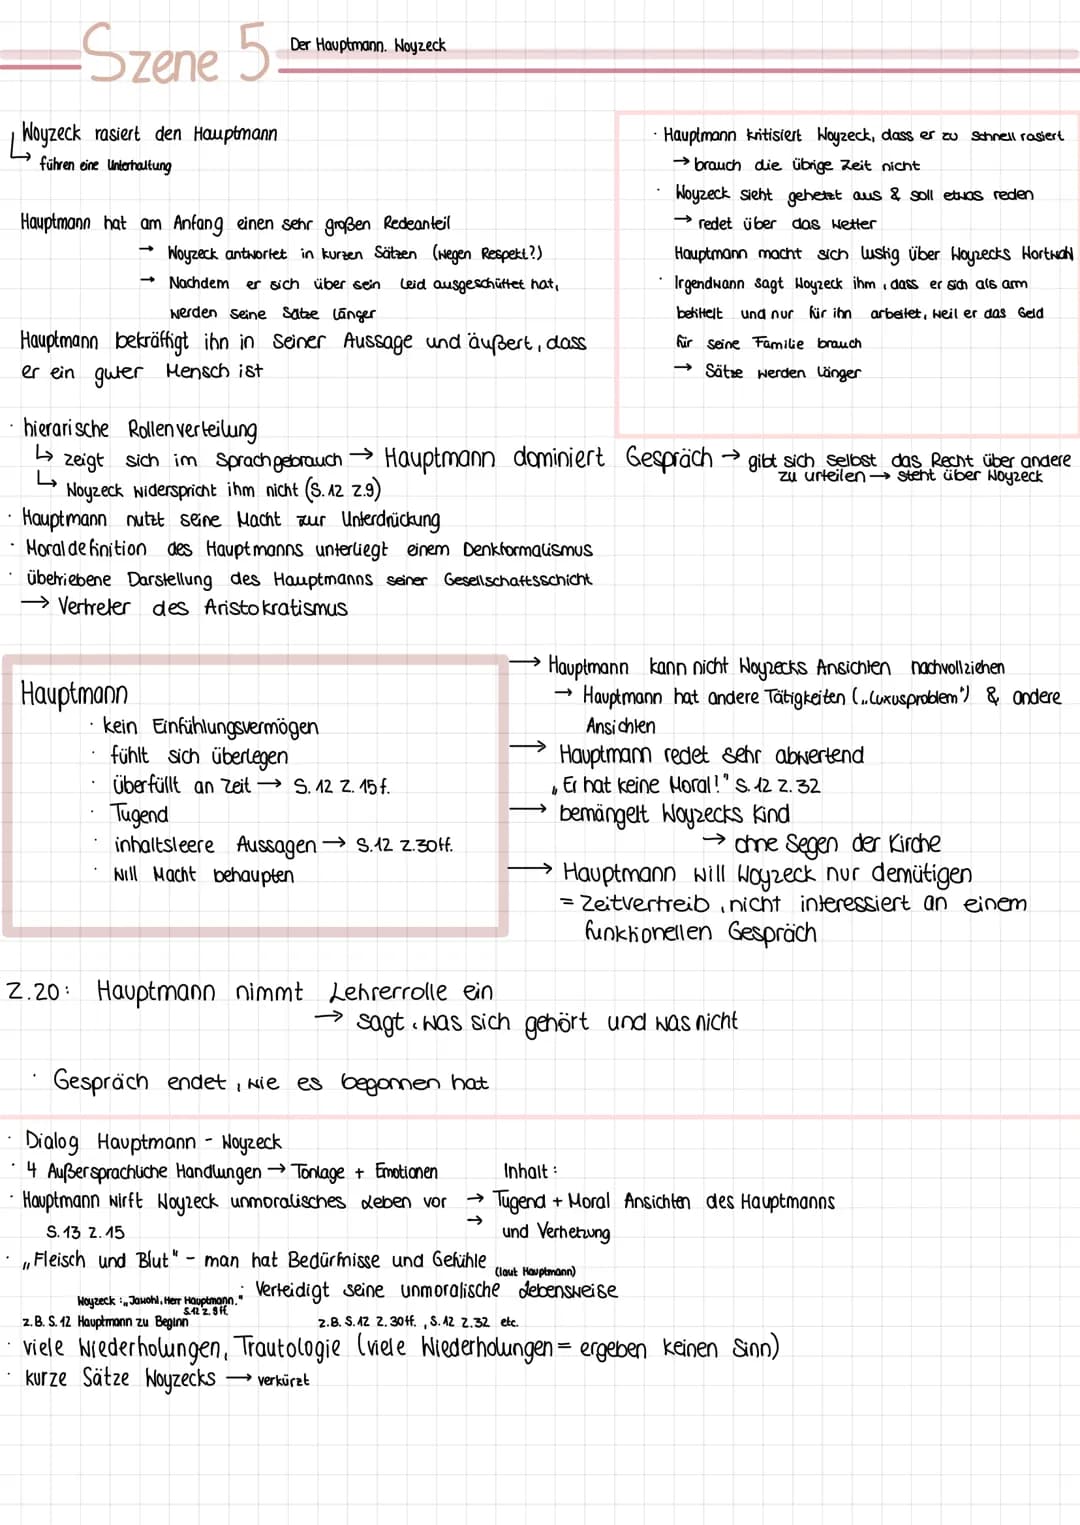 Szene 5
Der Hauptmann. Woyzeck
Woyzeck rasiert den Hauptmann
↳ führen eine Unterhaltung
Hauptmann hat am Anfang einen sehr großen Redeanteil
→ Woyzeck antwortet in kurzen Sätzen (wegen Respekt?)
→ Nachdem er sich über sein Leid ausgeschüttet hat,
werden seine Sätze länger
Hauptmann bekräftigt ihn in seiner Aussage und äußert, dass
er ein guter Mensch ist
· Hauptmann kritisiert Woyzeck, dass er zu schnell rasiert
→ brauch die übrige Zeit nicht
· Woyzeck sieht gehetzt aus & soll etwas reden
→ redet über das Wetter
Hauptmann macht sich lustig über Woyzecks Wortwahl
· Irgendwann sagt Woyzeck ihm, dass er sich als arm
betitelt und nur für ihn arbeitet, weil er das Geld
für seine Familie brauch
→ Sätze werden länger
· hierarische Rollenverteilung
↳ zeigt sich im Sprachgebrauch → Hauptmann dominiert Gespräch → gibt sich selbst das Recht über andere
zu urteilen → steht über Woyzeck
↳ Woyzeck widerspricht ihm nicht (S. 12 Z.9)
· Hauptmann nutzt seine Macht zur Unterdrückung
· Moraldefinition des Hauptmanns unterliegt einem Denkformalismus
· übetriebene Darstellung des Hauptmanns seiner Gesellschaftsschicht
→ Vertreter des Aristokratismus
Hauptmann
· kein Einfühlungsvermögen
· fühlt sich überlegen
· überfüllt an Zeit → S. 12 Z. 15 f.
· Tugend
· inhaltsleere Aussagen → S.12 Z.30ff.
· will Macht behaupten
→ Hauptmann kann nicht Woyzecks Ansichten nachvollziehen
→ Hauptmann hat andere Tätigkeiten („Luxusproblem") & andere
Ansichten
→ Hauptmann redet sehr abwertend
„Er hat keine Moral!" S. 12 Z. 32
→ bemängelt Woyzecks Kind
→ ohne Segen der Kirche
→ Hauptmann will Woyzeck nur demütigen
= Zeitvertreib, nicht interessiert an einem
funktionellen Gespräch
Z.20: Hauptmann nimmt Lehrerrolle ein
→ sagt, was sich gehört und was nicht
· Gespräch endet, wie es begonnen hat
· Dialog Hauptmann - Woyzeck
· 4 Außersprachliche Handlungen → Tonlage + Emotionen
Inhalt:
· Hauptmann wirft Woyzeck unmoralisches Leben vor
→ Tugend + Moral Ansichten des Hauptmanns
S. 13 Z. 15
→ und Verhetzung
· „Fleisch und Blut" - man hat Bedürfnisse und Gefühle
(laut Hauptmann)
· Verteidigt seine unmoralische Lebensweise
Woyzeck: „Jawohl, Herr Hauptmann."
S.12 Z. 9 ff.
z.B. S. 12 Hauptmann zu Beginn
z.B. S. 12 Z. 30 ff., S. 12 Z. 32 etc.
· viele Wiederholungen, Trautologie (viele Wiederholungen = ergeben keinen Sinn)
· kurze Sätze Woyzecks → verkürzt